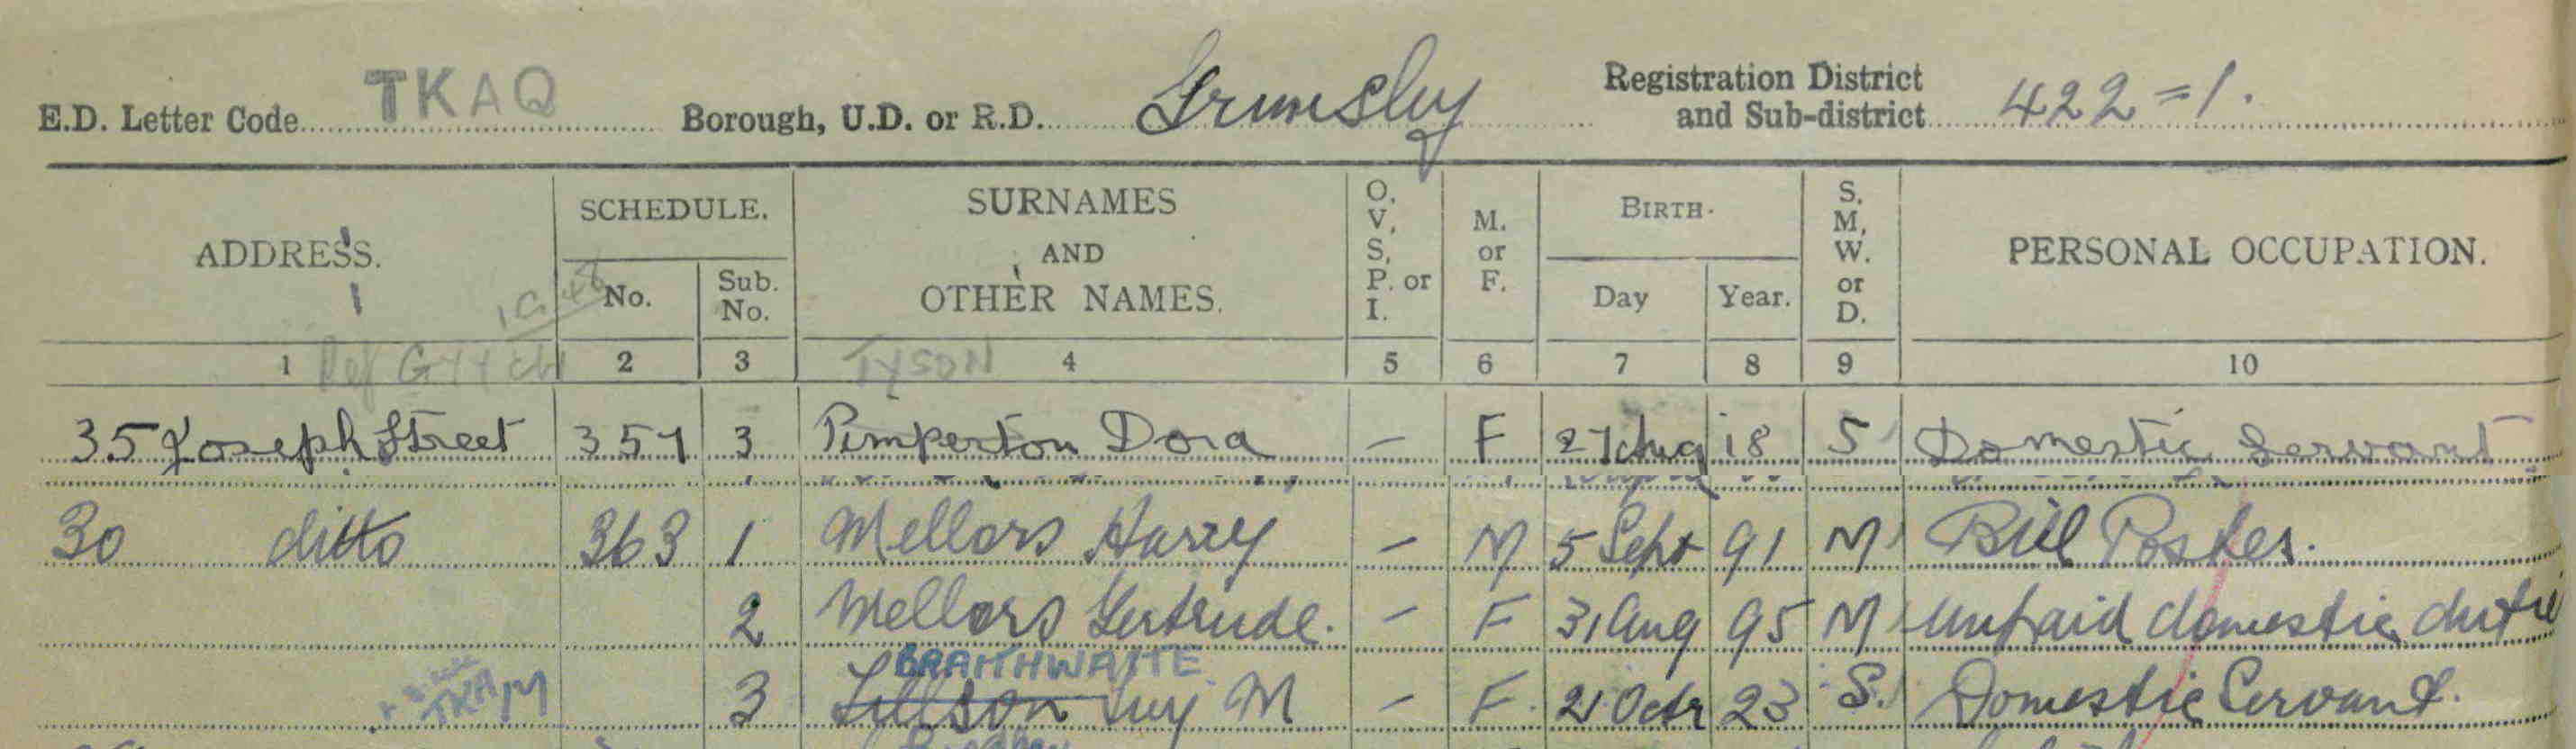 E.D. Letter Code TKAQ Borough, U.D. or R.D. Grimsby Registration District and Sub-district 422=1.
ADDRESS. SCHEDULE. No. Sub. No. SURNAMES AND OTHER NAMES. O, V, S, P. or I. M. or F. BIRTH. Day Year. S. M, W. or D. PERSONAL OCCUPATION.
1 2 3 TYSON 4 5 6 7 8 9 10
35 Joseph Street 357 3 Pimperton Dora – F 27 Aug 18 S Domestic Servant
30 ditto 363 1 Mellors Harry – M 5 Sept 91 M Bill Poster.
2 Mellors Gertrude. – F 31 Aug 95 M Unpaid domestic dutie
BRAITHWAITE
3 M – F. 21 Octr 23 S. Domestic Servant.